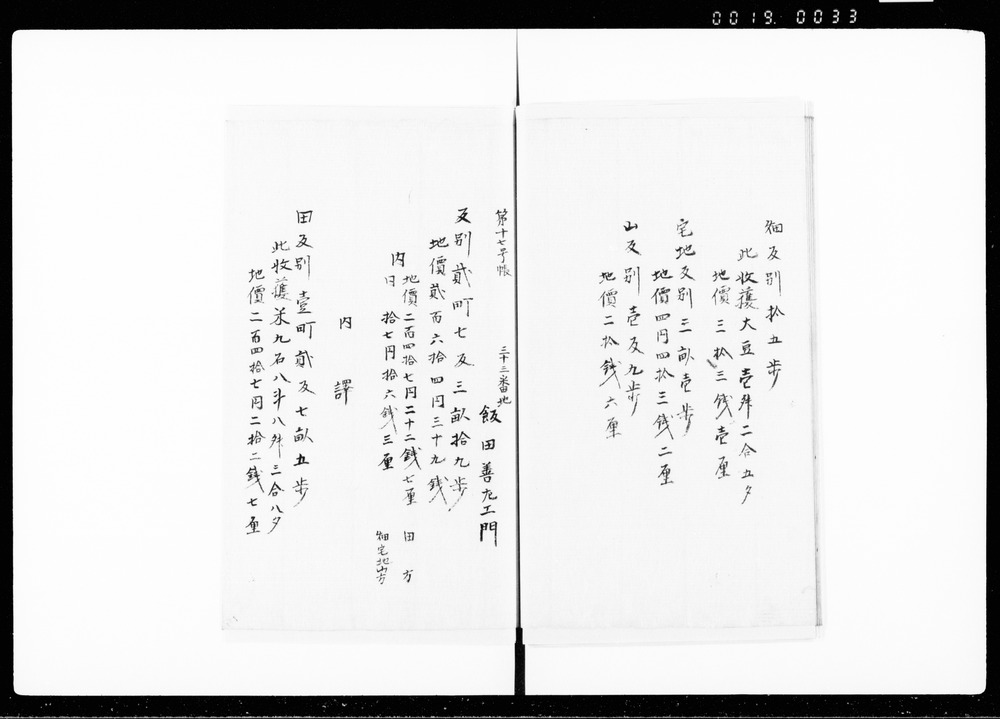 0019. 0033
畑反別拾五歩
此收穫大豆壱舛二合五夕
地價三拾三銭壱厘
宅地反別三畝壱歩
地價四円四拾三銭二厘
山反別壱反九歩
地價二拾銭六厘
第十七号帳
三十三番地
飯田善左エ門
反別貳町七反三畝拾九歩
地價貳百六拾四円三十九銭
内
地價二百四拾七円二十二銭七厘 田方
日拾七円拾六銭三厘 畑宅地山方
内譯
田反別壹町貳反七畝五歩
此收穫米九石八斗八舛三合八夕
地價二百四拾七円二拾二銭七厘